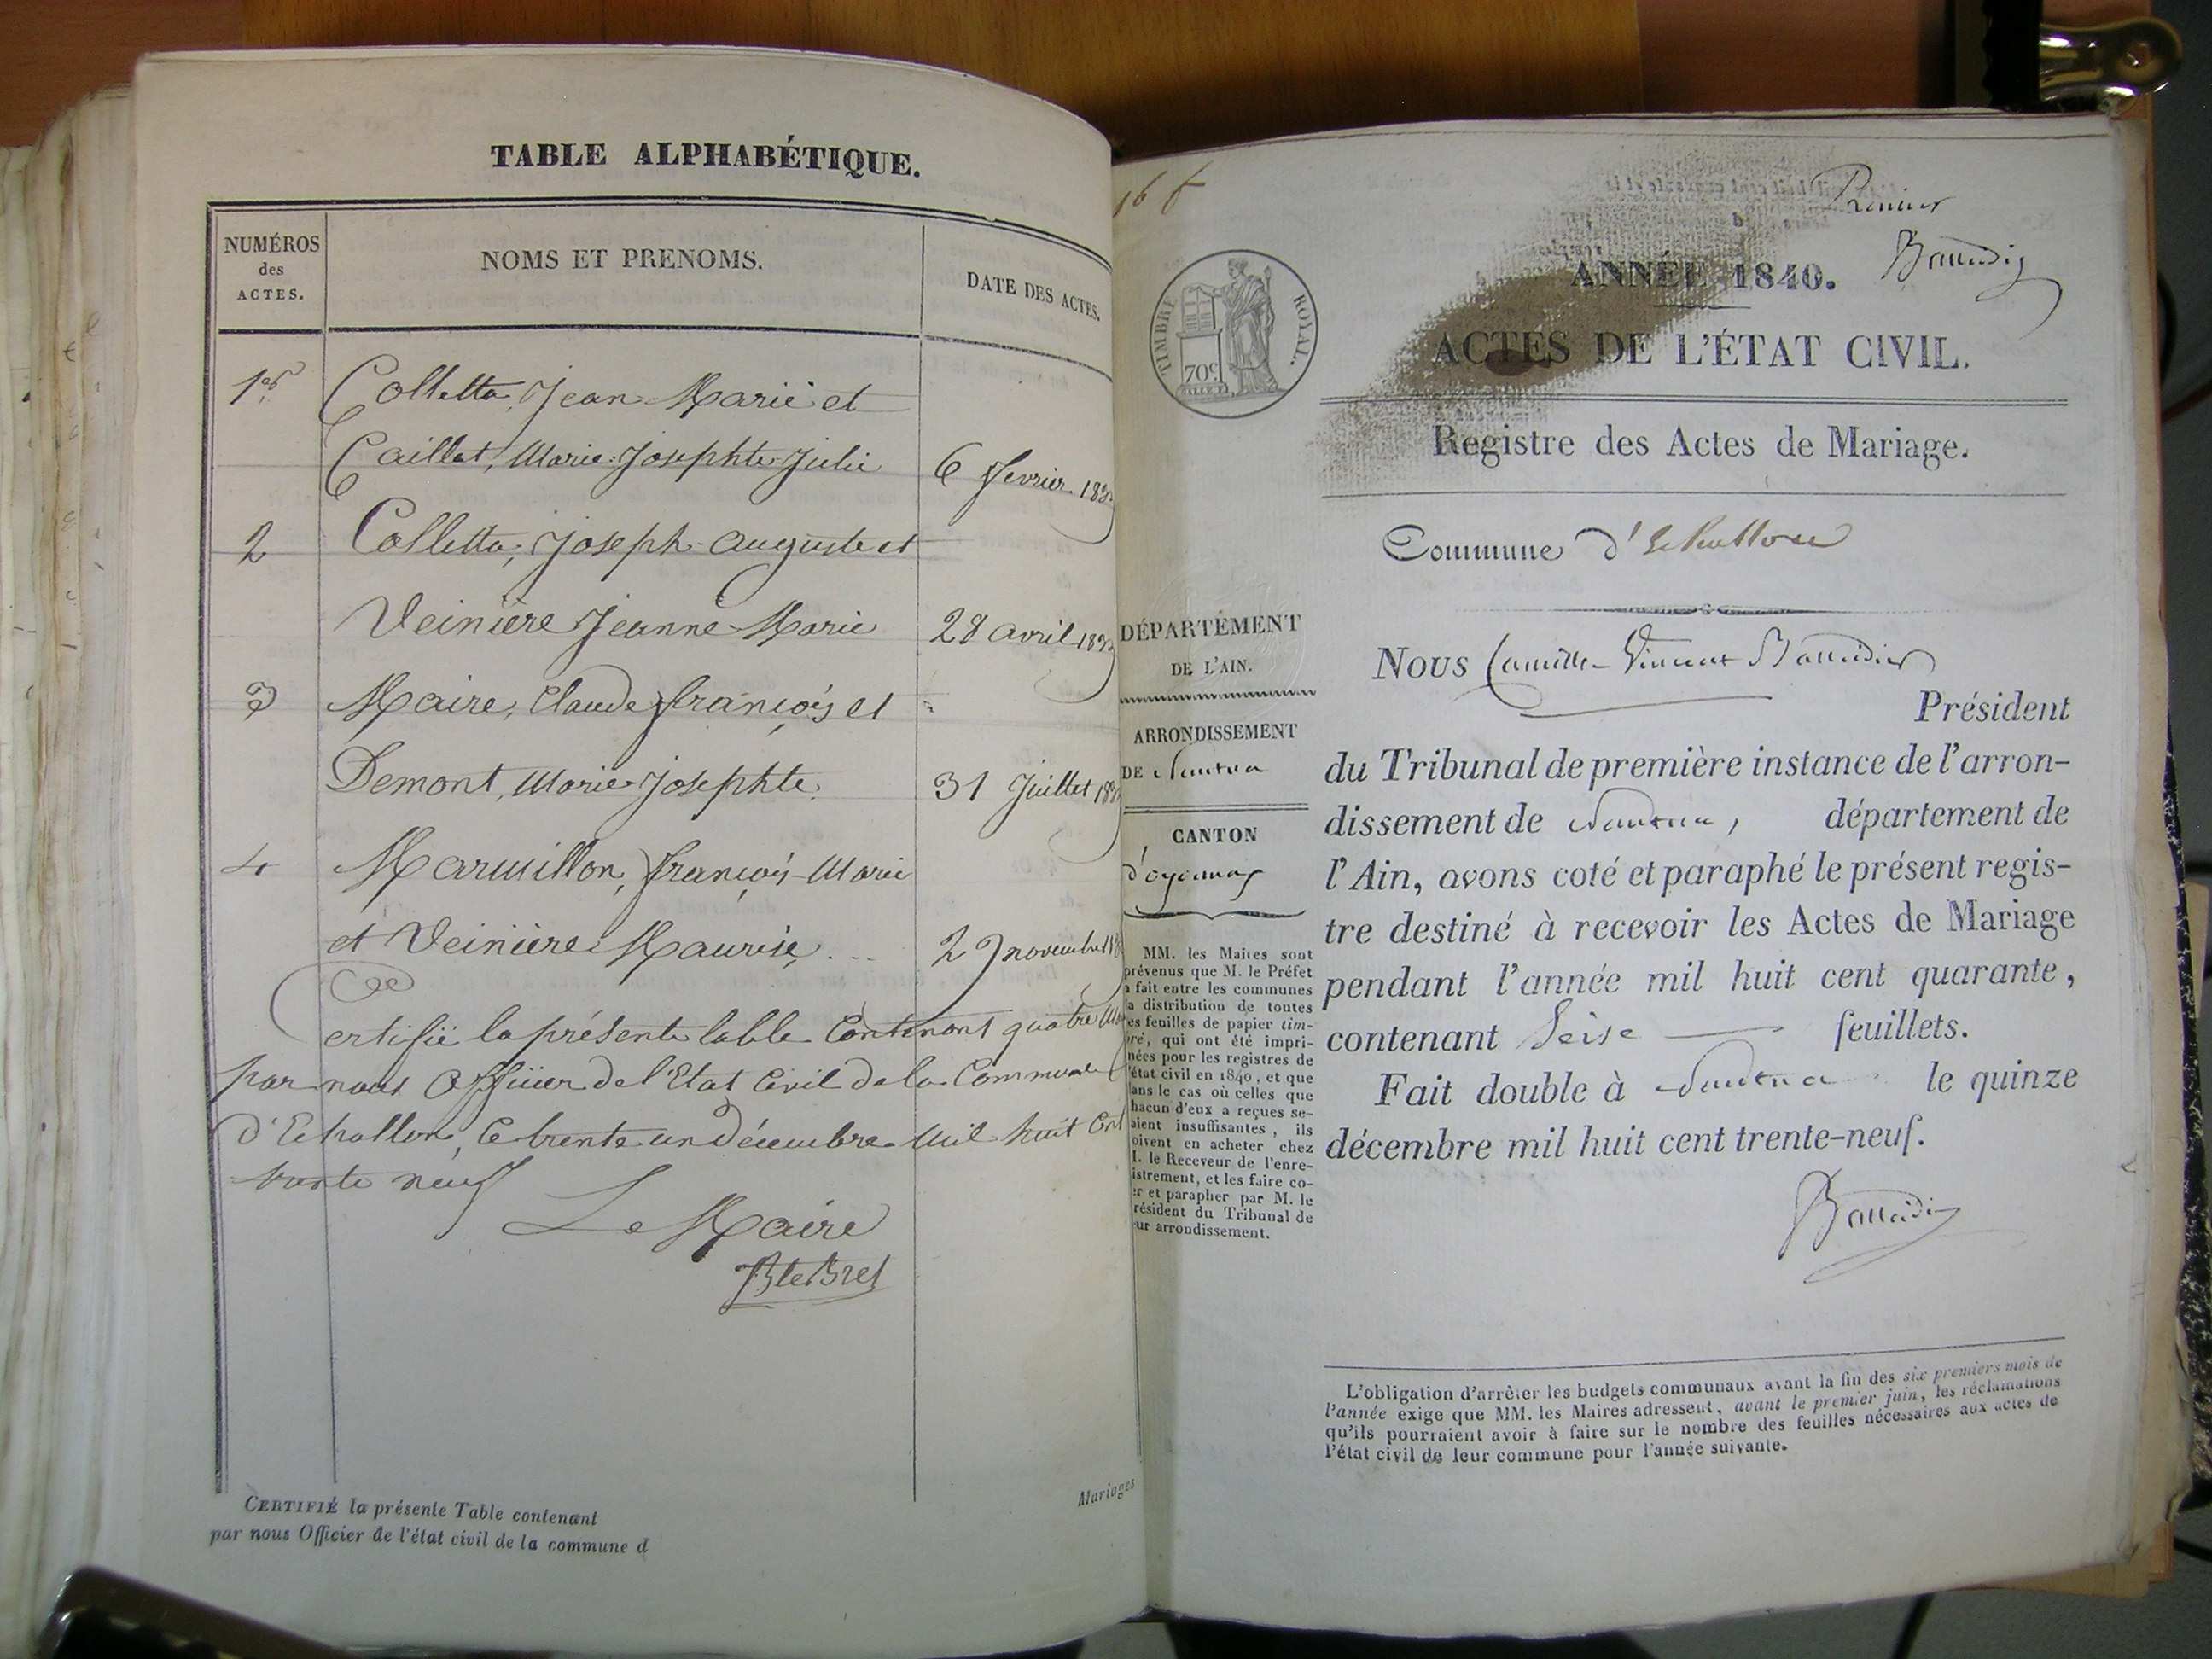 TABLE ALPHABÉTIQUE.
NUMÉROS
des
ACTES.
NOMS ET PRENOMS.
DATE DES ACTES.
1er Colletta, Jean Marie et
Caillat, Marie Josephte Julie 6 fevrier
2 Colletta, Joseph Auguste et
Veinière Jeanne Marie 28 avril
3 Maire, Claude françois et
Demont, Marie Josephte. 31 Juillet
4 Marmillon, françois Marie
et Veinière Maurise 2 novembre
Certifié la présente table Contenant quatre
par nous Officier de l'Etat Civil de la Commune
d'Echallon, le trente un décembre mil huit Cent
trente neuf
Le Maire
CERTIFIÉ la présente Table contenant
par nous Officier de l'état civil de la commune d
Mariages
16 f
Premier
TIMBRE ROYAL.
70c.
ANNÉE 1840.
ACTES DE L'ÉTAT CIVIL.
Registre des Actes de Mariage.
Commune d'Echallon
DÉPARTEMENT
DE L'AIN.
ARRONDISSEMENT
DE Nantua
CANTON
d'oyonnax
MM. les Maires sont
prévenus que M. le Préfet
a fait entre les communes
la distribution de toutes
es feuilles de papier tim-
bré, qui ont été impri-
mées pour les registres de
l'état civil en 1840, et que
dans le cas où celles que
chacun d'eux a reçues se-
raient insuffisantes, ils
doivent en acheter chez
M. le Receveur de l'enre-
gistrement, et les faire co-
er et parapher par M. le
Président du Tribunal de
leur arrondissement.
Nous Camille Vincent
Président
du Tribunal de première instance de l'arron-
dissement de Nantua, département de
l'Ain, avons coté et paraphé le présent regis-
tre destiné à recevoir les Actes de Mariage
pendant l'année mil huit cent quarante,
contenant Seise feuillets.
Fait double à Nantua le quinze
décembre mil huit cent trente-neuf.
L'obligation d'arrêter les budgets communaux avant la fin des six premiers mois de
l'année exige que MM. les Maires adressent, avant le premier juin, les réclamations
qu'ils pourraient avoir à faire sur le nombre des feuilles nécessaires aux actes de
l'état civil de leur commune pour l'année suivante.